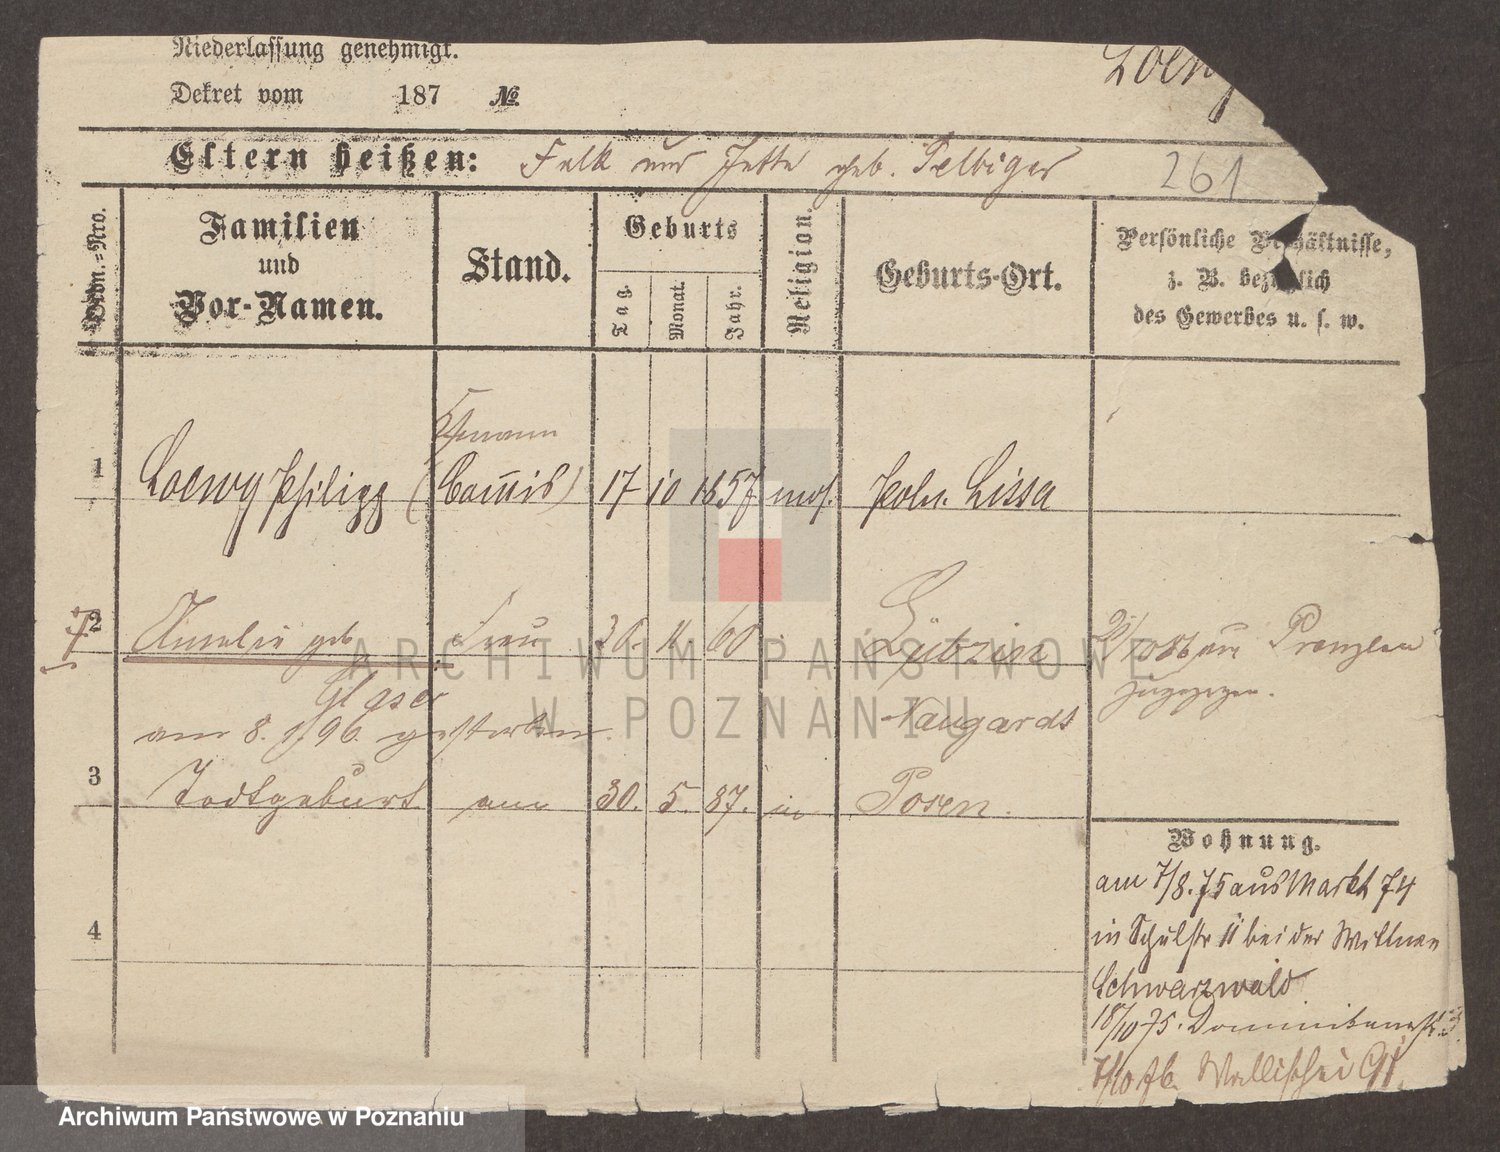 Niederlassung genehmigt.
Dekret vom 187 №
Loewy
Eltern heißen: Falk und Jette geb. Pelbiger
261
Ordn.-Nro.
Familien
und
Vor-Namen.
Stand.
Geburts
Tag.
Monat.
Jahr.
Religion.
Geburts-Ort.
Persönliche Verhältnisse,
z. B. bezüglich
des Gewerbes u. s. w.
Ehemann
1 Loewy Philipp (Commis) 17 10 1857 mos. Poln. Lissa
2 Amalie geb. Frau 26. 11. 60 Lübzin
Glaser Naugardt
am 8. 1. 96. gestorben.
Prenzlau
zugezogen.
3 Todtgeburt am 30. 5. 87. in Posen.
4
Wohnung.
am 7/8. 75 aus Markt 74
in Schulstr 11 bei der Wittwe
Schwarzwald
18/10 75. Dominikanerstr. 3
7/10 76. Wallischei 91.
ARCHIWUM PAŃSTWOWE
W POZNANIU
Archiwum Państwowe w Poznaniu